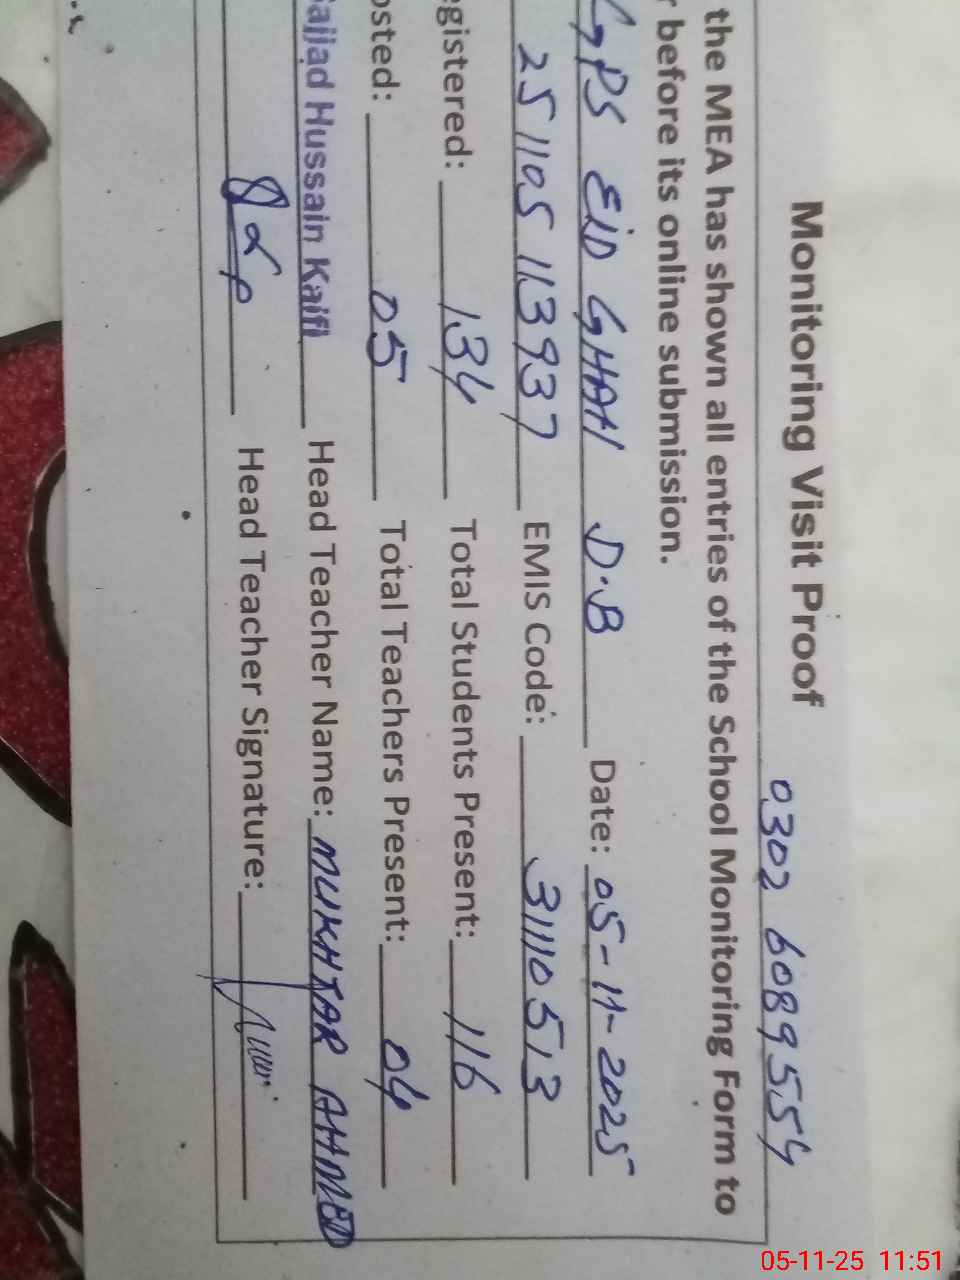 Monitoring Visit Proof 0302 6089554
the MEA has shown all entries of the School Monitoring Form to
before its online submission.
GPS EID GHAH D.B Date: 05-11-2025
25 1105 113937 EMIS Code: 31110513
egistered: 134 Total Students Present: 116
osted: 05 Total Teachers Present: 04
Sajjad Hussain Kaifi Head Teacher Name: MUKHTAR AHMED
Head Teacher Signature:
05-11-25 11:51